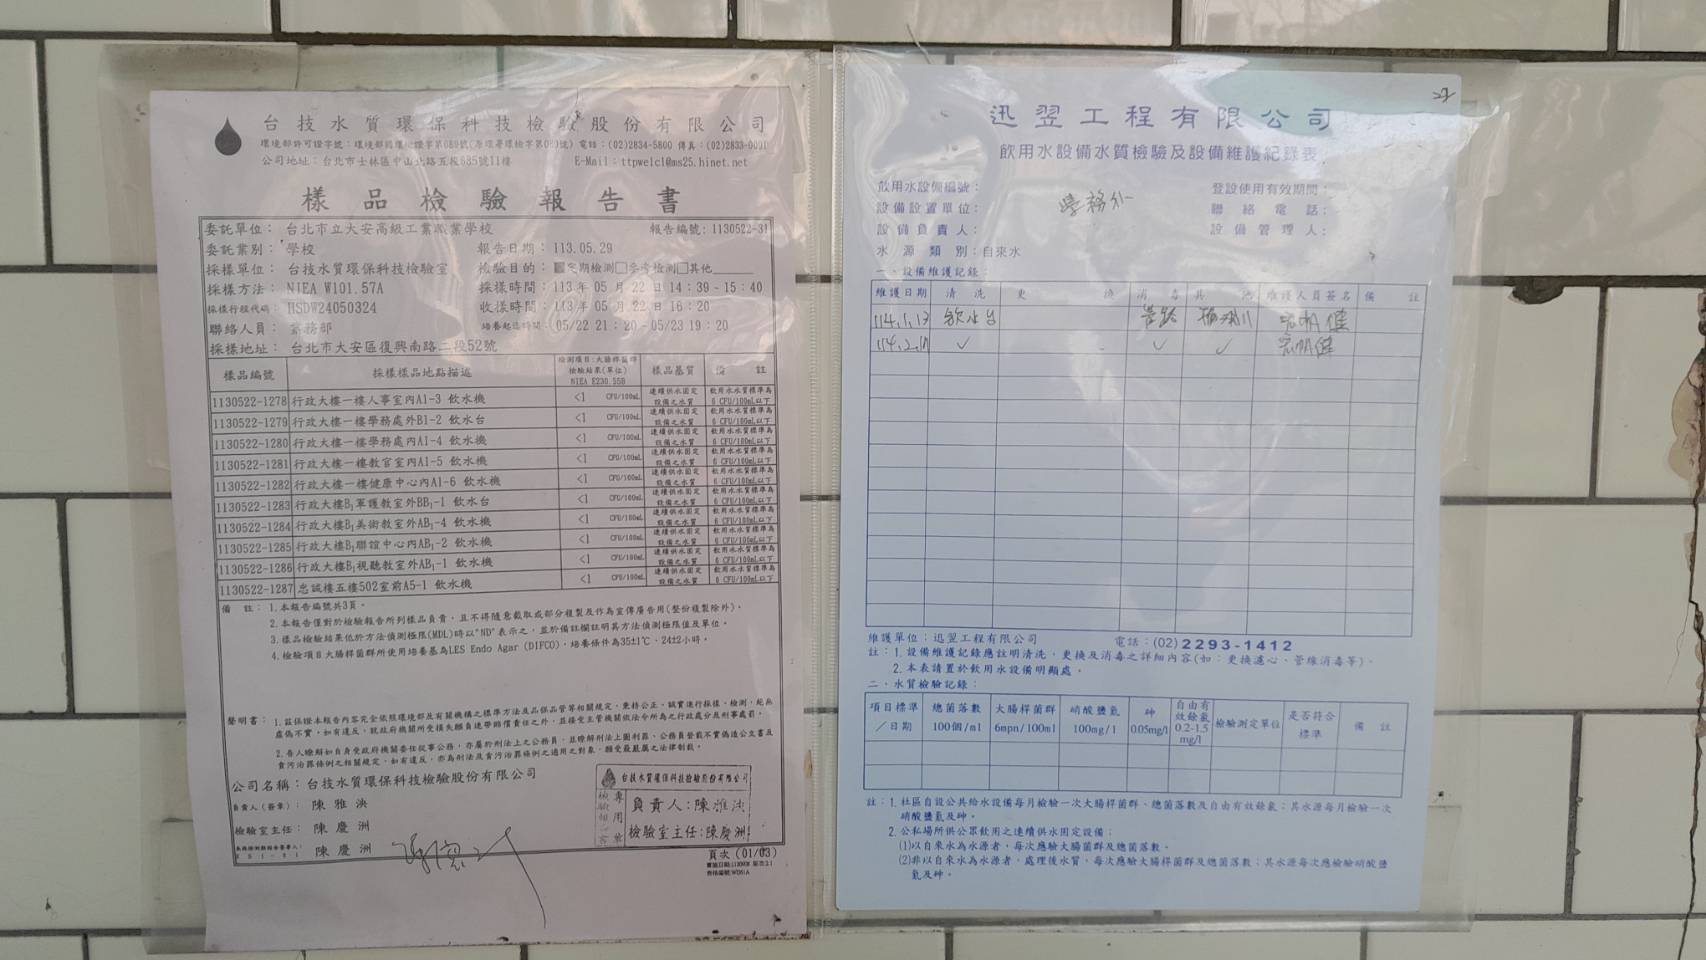 台技水質環保科技檢驗股份有限公司
環境部許可證字號：環境部國環檢證字第089號(原環署環檢字第089號) 電話：(02)2834-5800 傳真：(02)2833-0091
公司地址：台北市士林區中山北路五段685號11樓 E-Mail：ttpwelcl@ms25.hinet.net
樣品檢驗報告書
委託單位：台北市立大安高級工業職業學校 報告編號：1130522-31
委託業別：學校 報告日期：113.05.29
採樣單位：台技水質環保科技檢驗室 檢驗目的：■定期檢測□參考檢測□其他
採樣方法：NIEA W101.57A 採樣時間：113年05月22日14：39-15：40
採樣行程代碼：HSDW24050324 收樣時間：113年05月22日16：20
聯絡人員：業務部 培養起迄時間：05/22 21：20-05/23 19：20
採樣地址：台北市大安區復興南路二段52號
樣品編號 採樣樣品地點描述 檢測項目:大腸桿菌群 檢驗結果(單位) NIEA E230.55B 樣品基質 備 註
1130522-1278 行政大樓一樓人事室內A1-3 飲水機 <1 CFU/100mL 連續供水固定設備之水質 飲用水水質標準為6 CFU/100mL以下
1130522-1279 行政大樓一樓學務處外B1-2 飲水台 <1 CFU/100mL 連續供水固定設備之水質 飲用水水質標準為6 CFU/100mL以下
1130522-1280 行政大樓一樓學務處內A1-4 飲水機 <1 CFU/100mL 連續供水固定設備之水質 飲用水水質標準為6 CFU/100mL以下
1130522-1281 行政大樓一樓教官室內A1-5 飲水機 <1 CFU/100mL 連續供水固定設備之水質 飲用水水質標準為6 CFU/100mL以下
1130522-1282 行政大樓一樓健康中心內A1-6 飲水機 <1 CFU/100mL 連續供水固定設備之水質 飲用水水質標準為6 CFU/100mL以下
1130522-1283 行政大樓B₁軍護教室外BB₁-1 飲水台 <1 CFU/100mL 連續供水固定設備之水質 飲用水水質標準為6 CFU/100mL以下
1130522-1284 行政大樓B₁美術教室外AB₁-4 飲水機 <1 CFU/100mL 連續供水固定設備之水質 飲用水水質標準為6 CFU/100mL以下
1130522-1285 行政大樓B₁聯誼中心內AB₁-2 飲水機 <1 CFU/100mL 連續供水固定設備之水質 飲用水水質標準為6 CFU/100mL以下
1130522-1286 行政大樓B₁視聽教室外AB₁-1 飲水機 <1 CFU/100mL 連續供水固定設備之水質 飲用水水質標準為6 CFU/100mL以下
1130522-1287 忠誠樓五樓502室前A5-1 飲水機 <1 CFU/100mL 連續供水固定設備之水質 飲用水水質標準為6 CFU/100mL以下
備 註：1.本報告編號共3頁。
2.本報告僅對於檢驗報告所列樣品負責，且不得隨意截取或部分複製及作為宣傳廣告用(整份複製除外)。
3.樣品檢驗結果低於方法偵測極限(MDL)時以"ND"表示之，並於備註欄註明其方法偵測極限值及單位。
4.檢驗項目大腸桿菌群所使用培養基為LES Endo Agar (DIFCO)，培養條件為35±1℃、24±2小時。
聲明書：1.茲保證本報告內容完全依照環境部及有關機構之標準方法及品保品管等相關規定，秉持公正、誠實進行採樣、檢測，絕無
虛偽不實，如有違反，就政府機關所受損失願負連帶賠償責任之外，並接受主管機關依法令所為之行政處分及刑事處罰。
2.吾人瞭解如自身受政府機關委任從事公務，亦屬於刑法上之公務員，並瞭解刑法上圖利罪、公務員登載不實偽造公文書及
貪污治罪條例之相關規定，如有違反，亦為刑法及貪污治罪條例之適用之對象，願受最嚴厲之法律制裁。
公司名稱：台技水質環保科技檢驗股份有限公司
負責人(簽章)：陳雅泱
檢驗室主任：陳慶洲
陳慶洲
台技水質環保科技檢驗股份有限公司
負責人:陳雅泱
檢驗室主任:陳慶洲
頁次 (01/03)
迅翌工程有限公司
飲用水設備水質檢驗及設備維護紀錄表
飲用水設備編號： 登設使用有效期間：
設備設置單位：學務外 聯絡電話：
設備負責人： 設備管理人：
水源類別：自來水
一、設備維護記錄：
維護日期 清 洗 更 換 消 毒 其 他 維護人員簽名 備 註
114.1.13 飲水台 管路
✓ ✓ ✓
維護單位：迅翌工程有限公司 電話：(02) 2293-1412
註：1. 設備維護記錄應註明清洗，更換及消毒之詳細內容(如：更換濾心、管線消毒等)。
2. 本表請置於飲用水設備明顯處。
二、水質檢驗記錄：
項目標準／日期 總菌落數 100個/ml 大腸桿菌群 6mpn/100ml 硝酸鹽氮 100mg/l 砷 0.05mg/l 自由有效餘氯 0.2-1.5 mg/l 檢驗測定單位 是否符合標準 備 註
註：1. 社區自設公共給水設備每月檢驗一次大腸桿菌群、總菌落數及自由有效餘氯；其水源每月檢驗一次
硝酸鹽氮及砷。
2. 公私場所供公眾飲用之連續供水固定設備：
(1)以自來水為水源者，每次應驗大腸桿菌群及總菌落數。
(2)非以自來水為水源者，處理後水質，每次應驗大腸桿菌群及總菌落數；其水源每次應檢驗硝酸鹽
氮及砷。